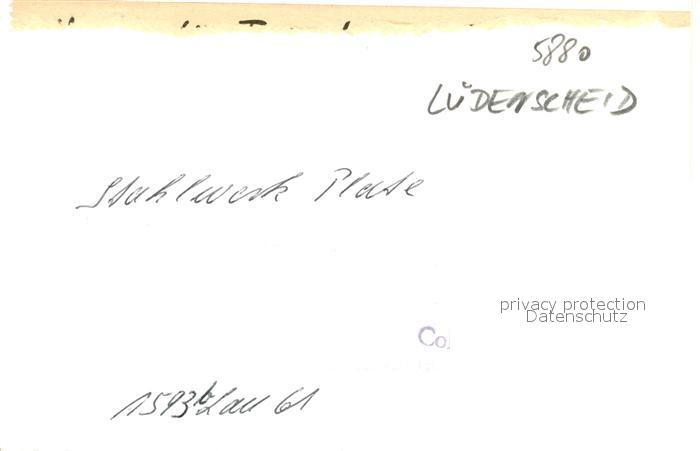 5880
LÜDENSCHEID
Stahlwerk Plate
privacy protection
Datenschutz
Col
1593
61